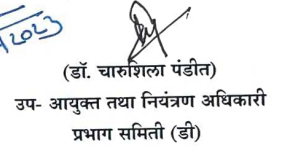 2023
(डॉ. चारुशिला पंडीत)
उप- आयुक्त तथा नियंत्रण अधिकारी
प्रभाग समिती (डी)